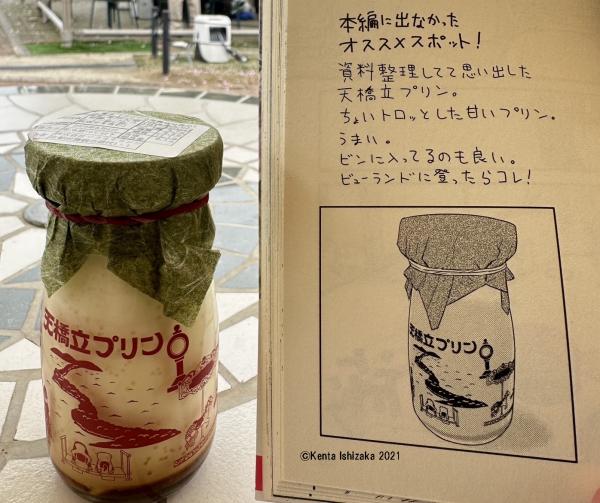 天橋立プリン
本編に出なかった
オススメスポット!
資料整理してて思い出した
天橋立プリン。
ちょいトロッとした甘いプリン。
うまい。
ビンに入ってるのも良い。
ビューランドに登ったらコレ!
天橋立プリン
©Kenta Ishizaka 2021